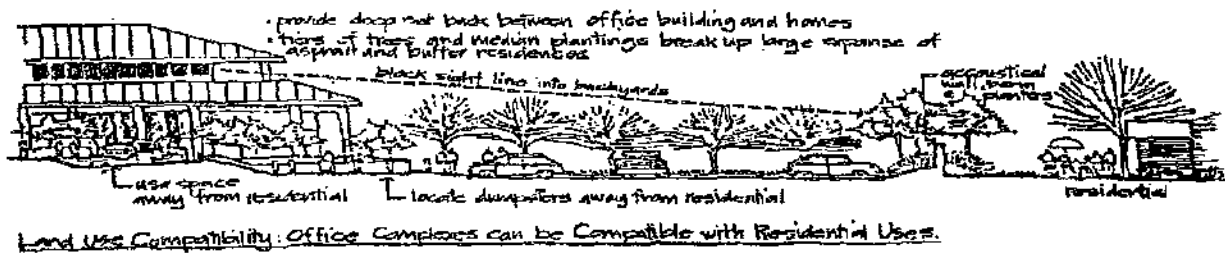 • provide deep set back between office building and homes
• tiers of trees and median plantings break up large expanse of
asphalt and buffer residences
block sight line into backyards
accoustical
wall, berm
& planters
use space
away from residential
locate dumpsters away from residential
residential
Land Use Compatibility: Office Complexes can be Compatible with Residential Uses.